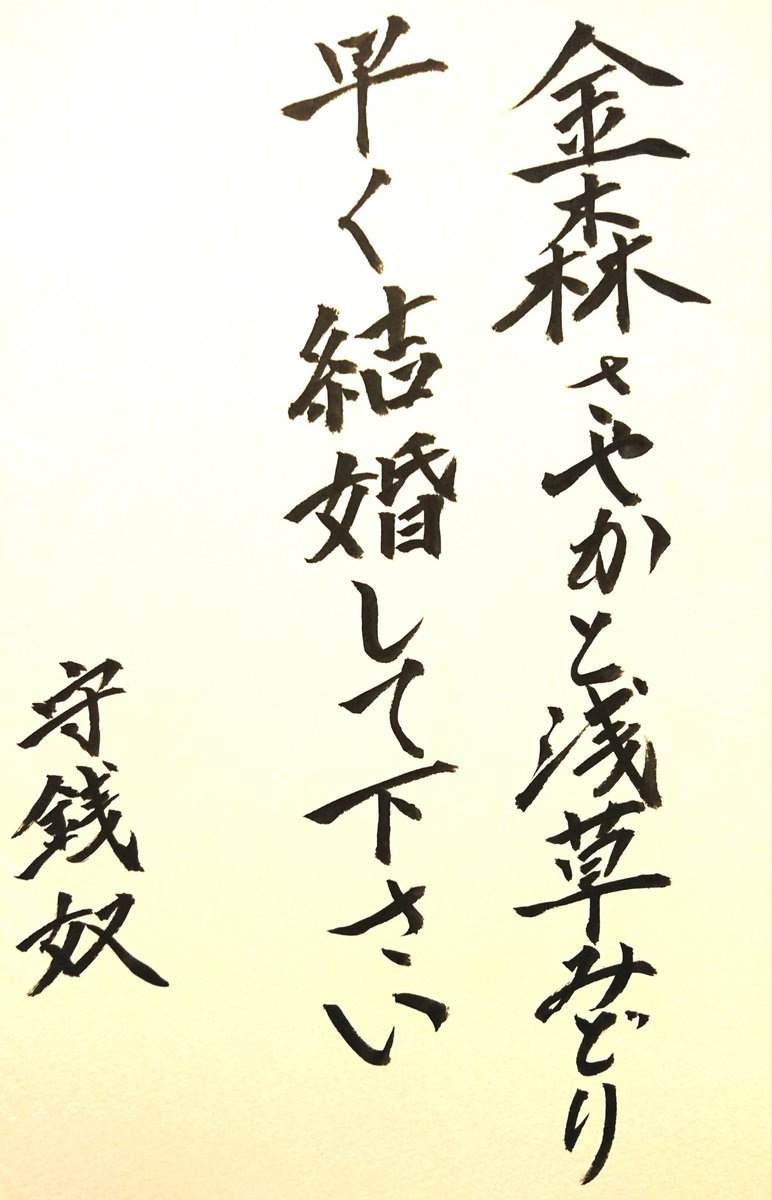 金森さやかと浅草みどり
早く結婚して下さい
守銭奴